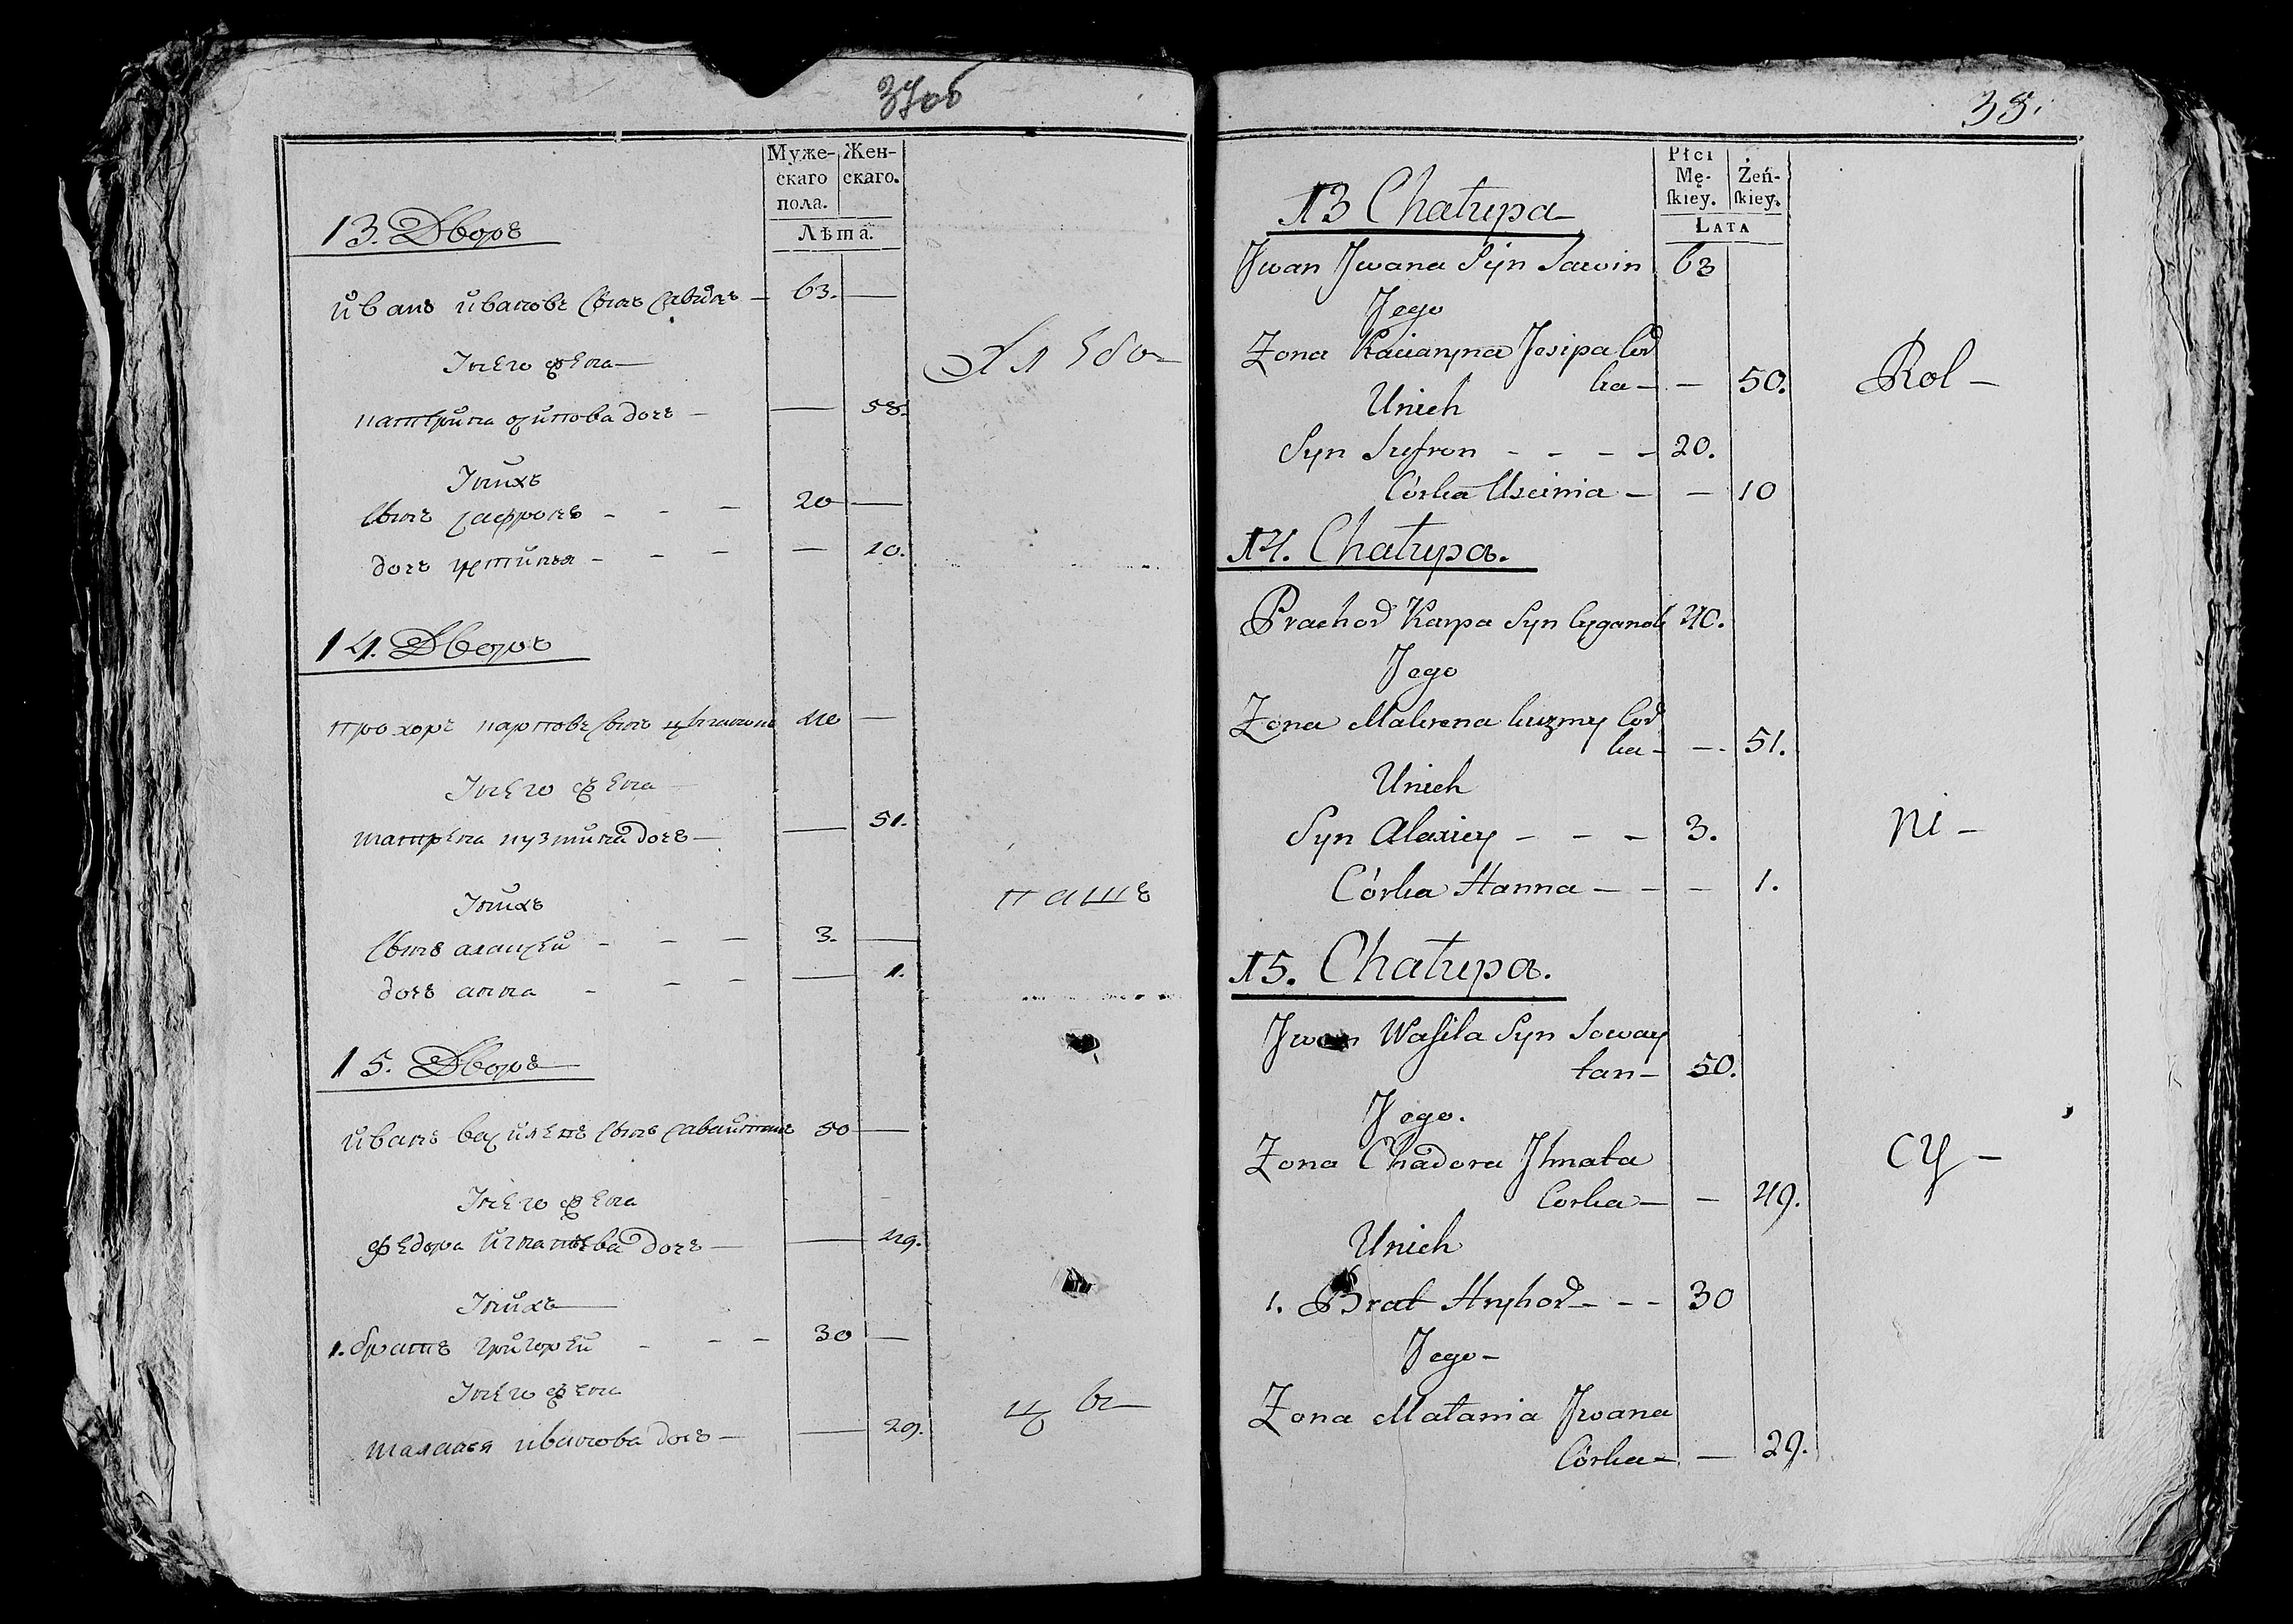 34об
Муже-
скаго
пола.
Жен-
скаго.
Лѣта.
13. Дворъ
иванъ ивановъ сынъ савинъ — 63. —
Унего жена —
катерина осипова дочъ — — 58.
Уних
сынъ сафронъ - - - 20 —
дочъ устинья - - - — 10.
Хлебо
14. Дворъ
прохоръ карповъ сынъ цыганокъ 40 —
Унего жена —
макрена кузмина дочъ — — 51.
Унихъ
сынъ алаксей - - - 3. —
дочъ анна - - - — 1.
паше
15. Дворъ
иванъ василевъ сынъ савайтанъ 50 —
Унего жена
федора игнатьева дочъ — — 49.
Унихъ
1. братъ григорей - - - 30 —
Унего жена
маланья иванова дочъ — — 29.
цы
35.
Płci
Mę-
skiey.
Żeń-
skiey.
LATA
13 Chatupa
Jwan Jwana Syn Sawin 63
Jego
Zona Kacianyna Josipa Cor
ka — — 50.
Unich
Syn Sufron - - - - 20.
Córka Uscinia — — 10
Rol —
14. Chatupa.
Prachor Karpa Syn Cyganok 40.
Jego
Zona Makrena kuzmy Cor
ka - — 51.
Unich
Syn Alaxiey - - - 3.
Córka Hanna - - - 1.
Ni —
15. Chatupa.
Jwan Wasila Syn Soway
tan — 50.
Jego.
Zona Chadora Jhnata
Corka — — 49.
Unich
1. Brat Hryhor - - - 30
Jego —
Zona Matania Jwana
Córka — — 29.
Cy —